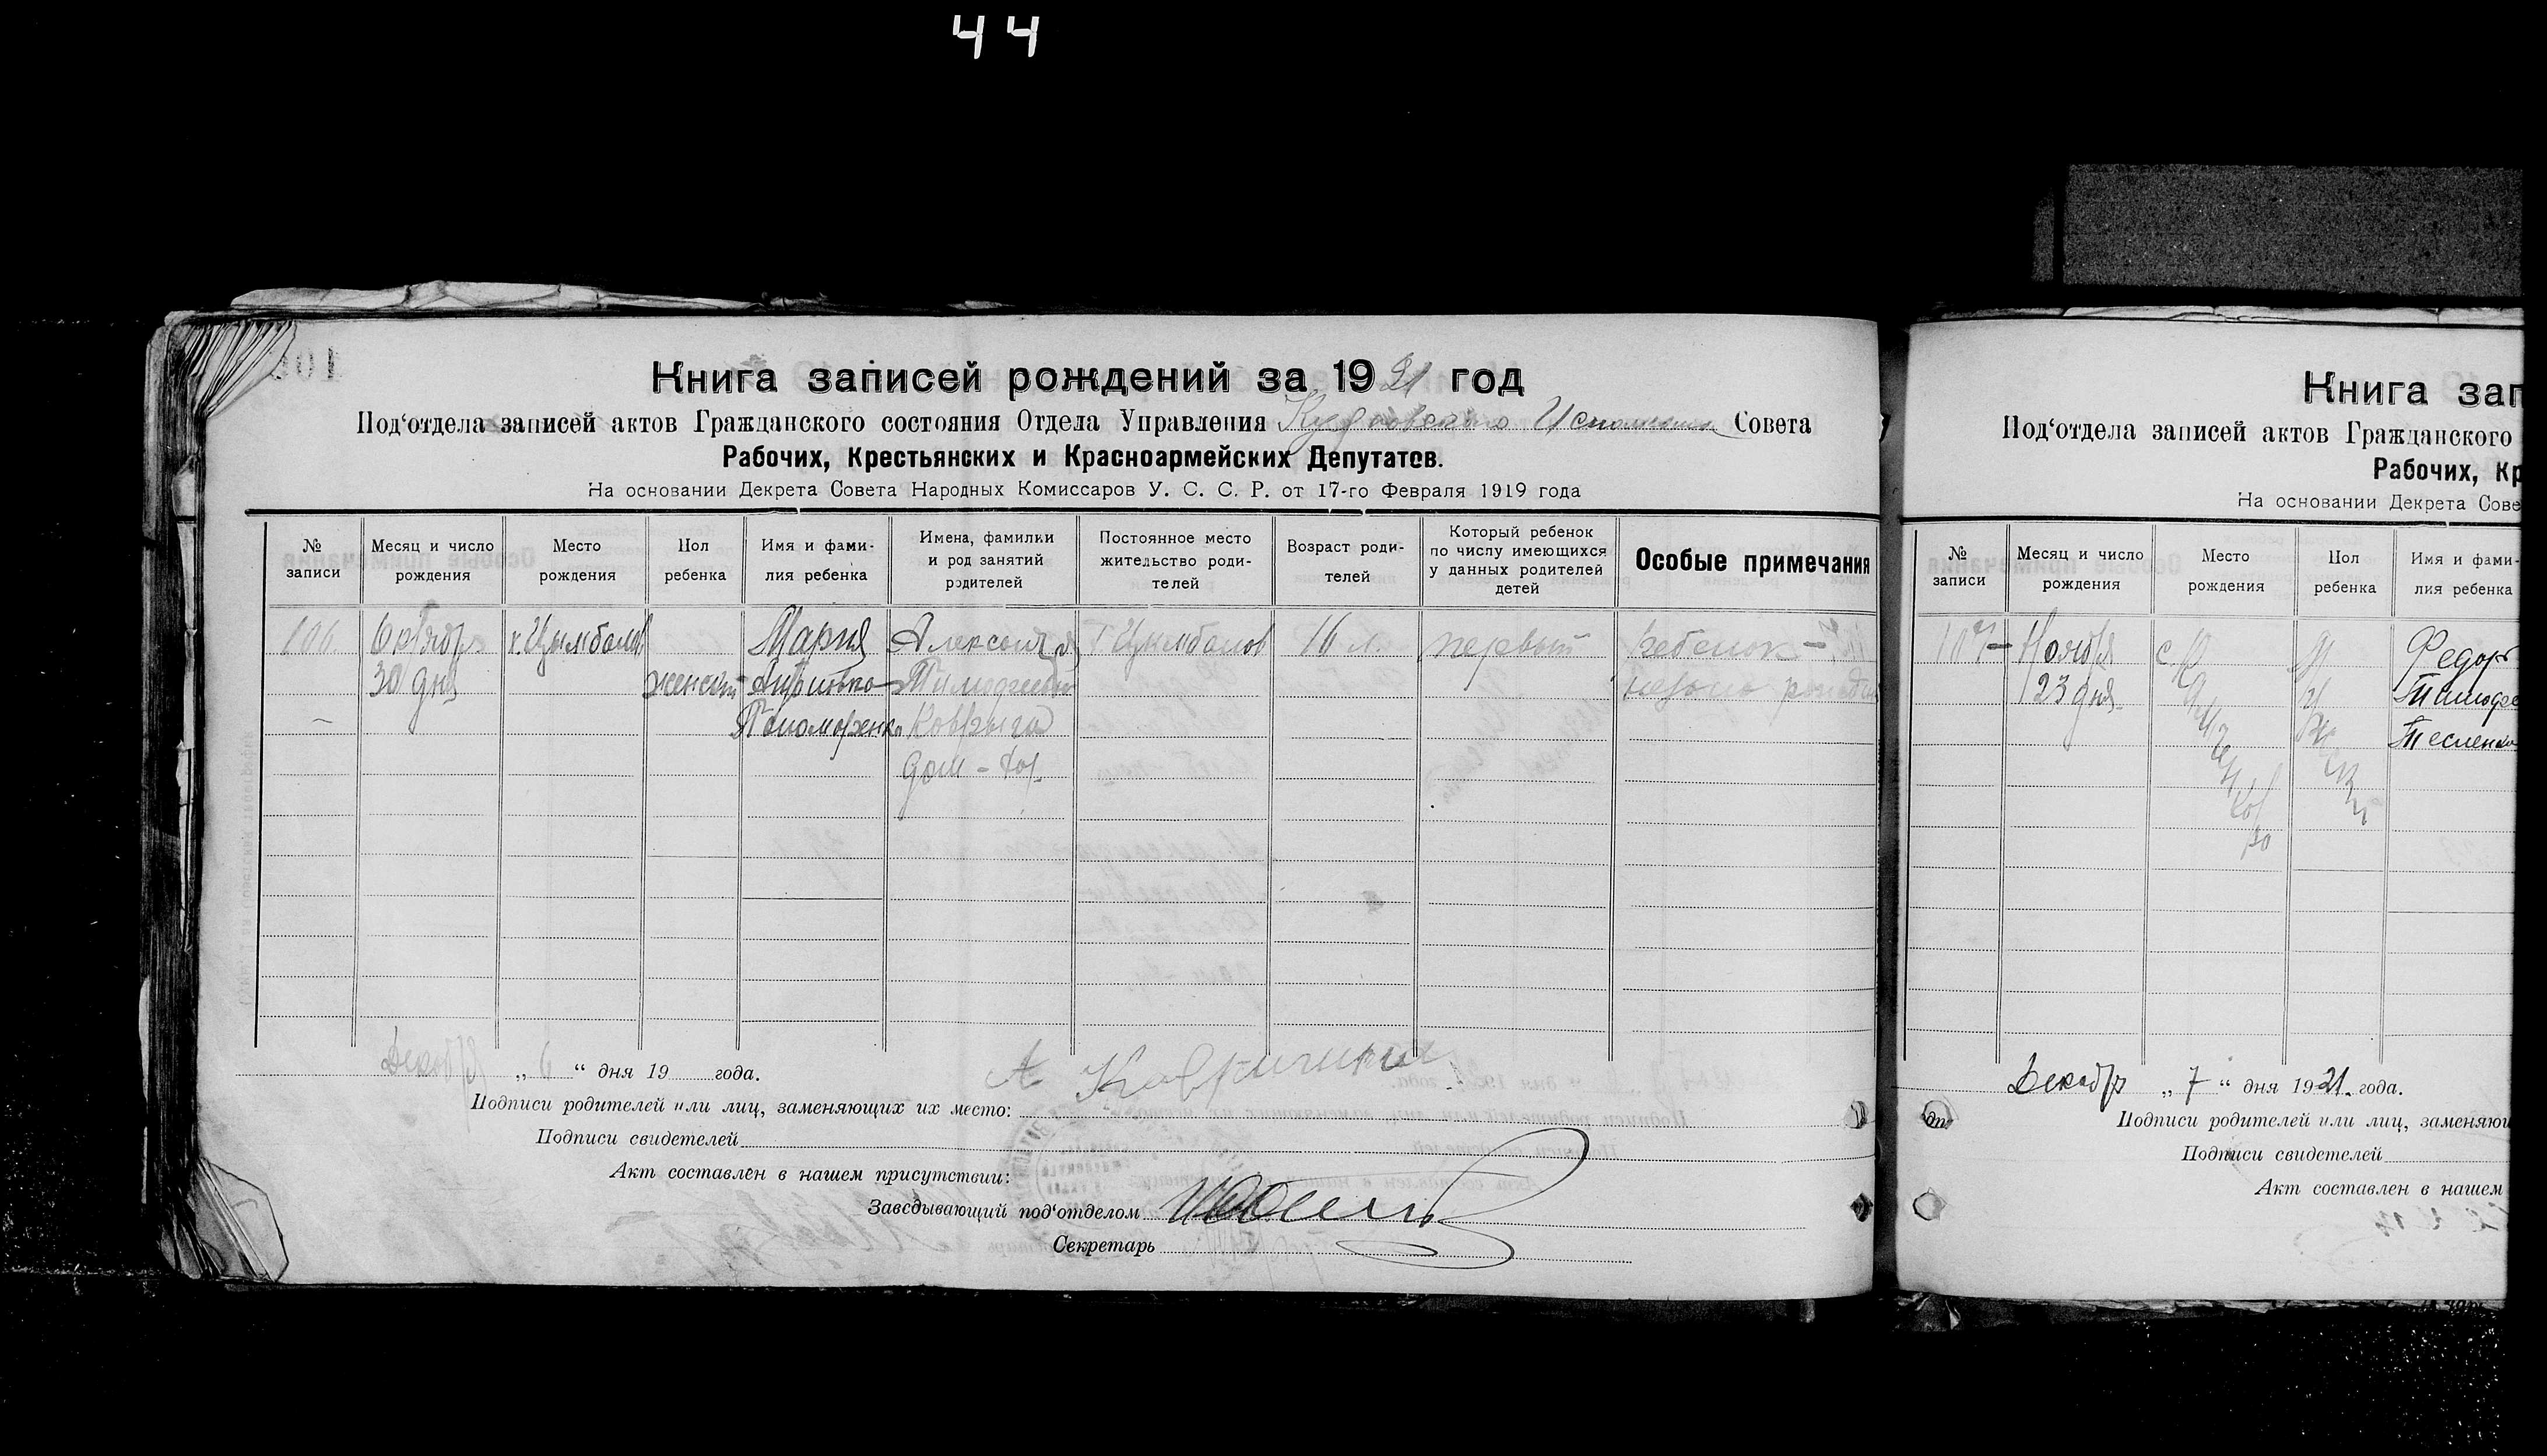 44
Книга записей рождений за 1921 год
Под‘отдела записей актов Гражданского состояния Отдела Управления Совета
Рабочих, Крестьянских и Красноармейских Депутатов.
На основании Декрета Совета Народных Комиссаров У. С. С. Р. от 17-го Февраля 1919 года
№ записи
Месяц и число рождения
Место рождения
Пол ребенка
Имя и фами-
лия ребенка
Имена, фамилии
и род занятий
родителей
Постоянное место
жительство роди-
телей
Возраст роди-
телей
Который ребенок
по числу имеющихся
у данных родителей
детей
Особые примечания
106
Октябр
30 дня
х. Цымбалов
женск
Мария
Пономаренко
Александра
Тимофеевна
Коврыга
дом-хоз
Цимбалов
16 л.
первый
ребенок
Декабр „ 6 “ дня 19 года.
Подписи родителей или лиц, заменяющих их место:
Подписи свидетелей
Акт составлен в нашем присутствии:
Заведывающий под‘отделом
Секретарь
Книга зап
Под‘отдела записей актов Гражданского
Рабочих, Кр
На основании Декрета Сове
№ записи
Месяц и число рождения
Место рождения
Пол ребенка
Имя и фами-
лия ребенка
107
Ноября
23 дня
Федор
Тимофе
Тесленко
Декабр „ 7 “ дня 1921. года.
Подписи родителей или лиц, заменяющ
Подписи свидетелей
Акт составлен в нашем